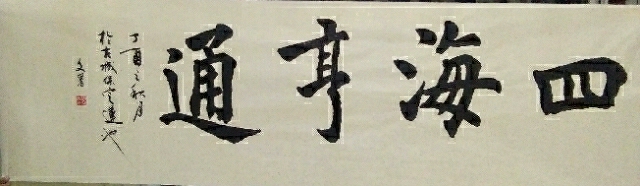 四海亨通
丁酉之秋月
於古城保定蓮池